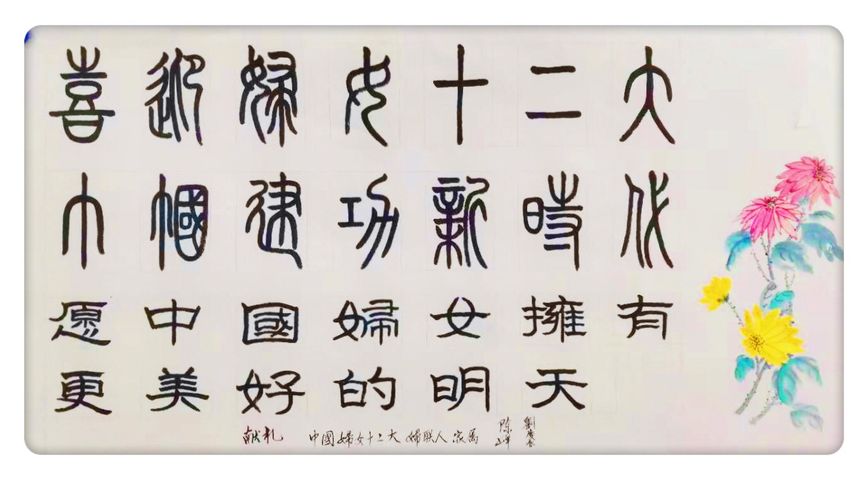 喜迎婦女十二大
巾帼建功新時代
愿中國婦女擁有
更美好的明天
献礼 中國婦女十二大 婦联人 陈 劉